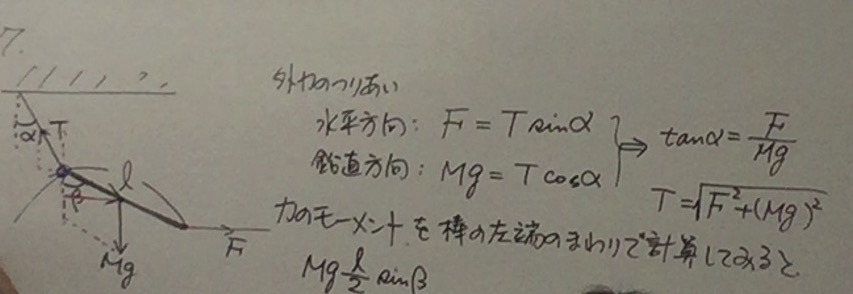 7.
外力のつりあい
水平方向: F = T sinα
鉛直方向: Mg = T cosα
⇒ tanα = F/Mg
T = √F²+(Mg)²
力のモーメントを棒の左端のまわりで計算してみると
Mg l/2 sinβ
α
T
l
β
F
Mg